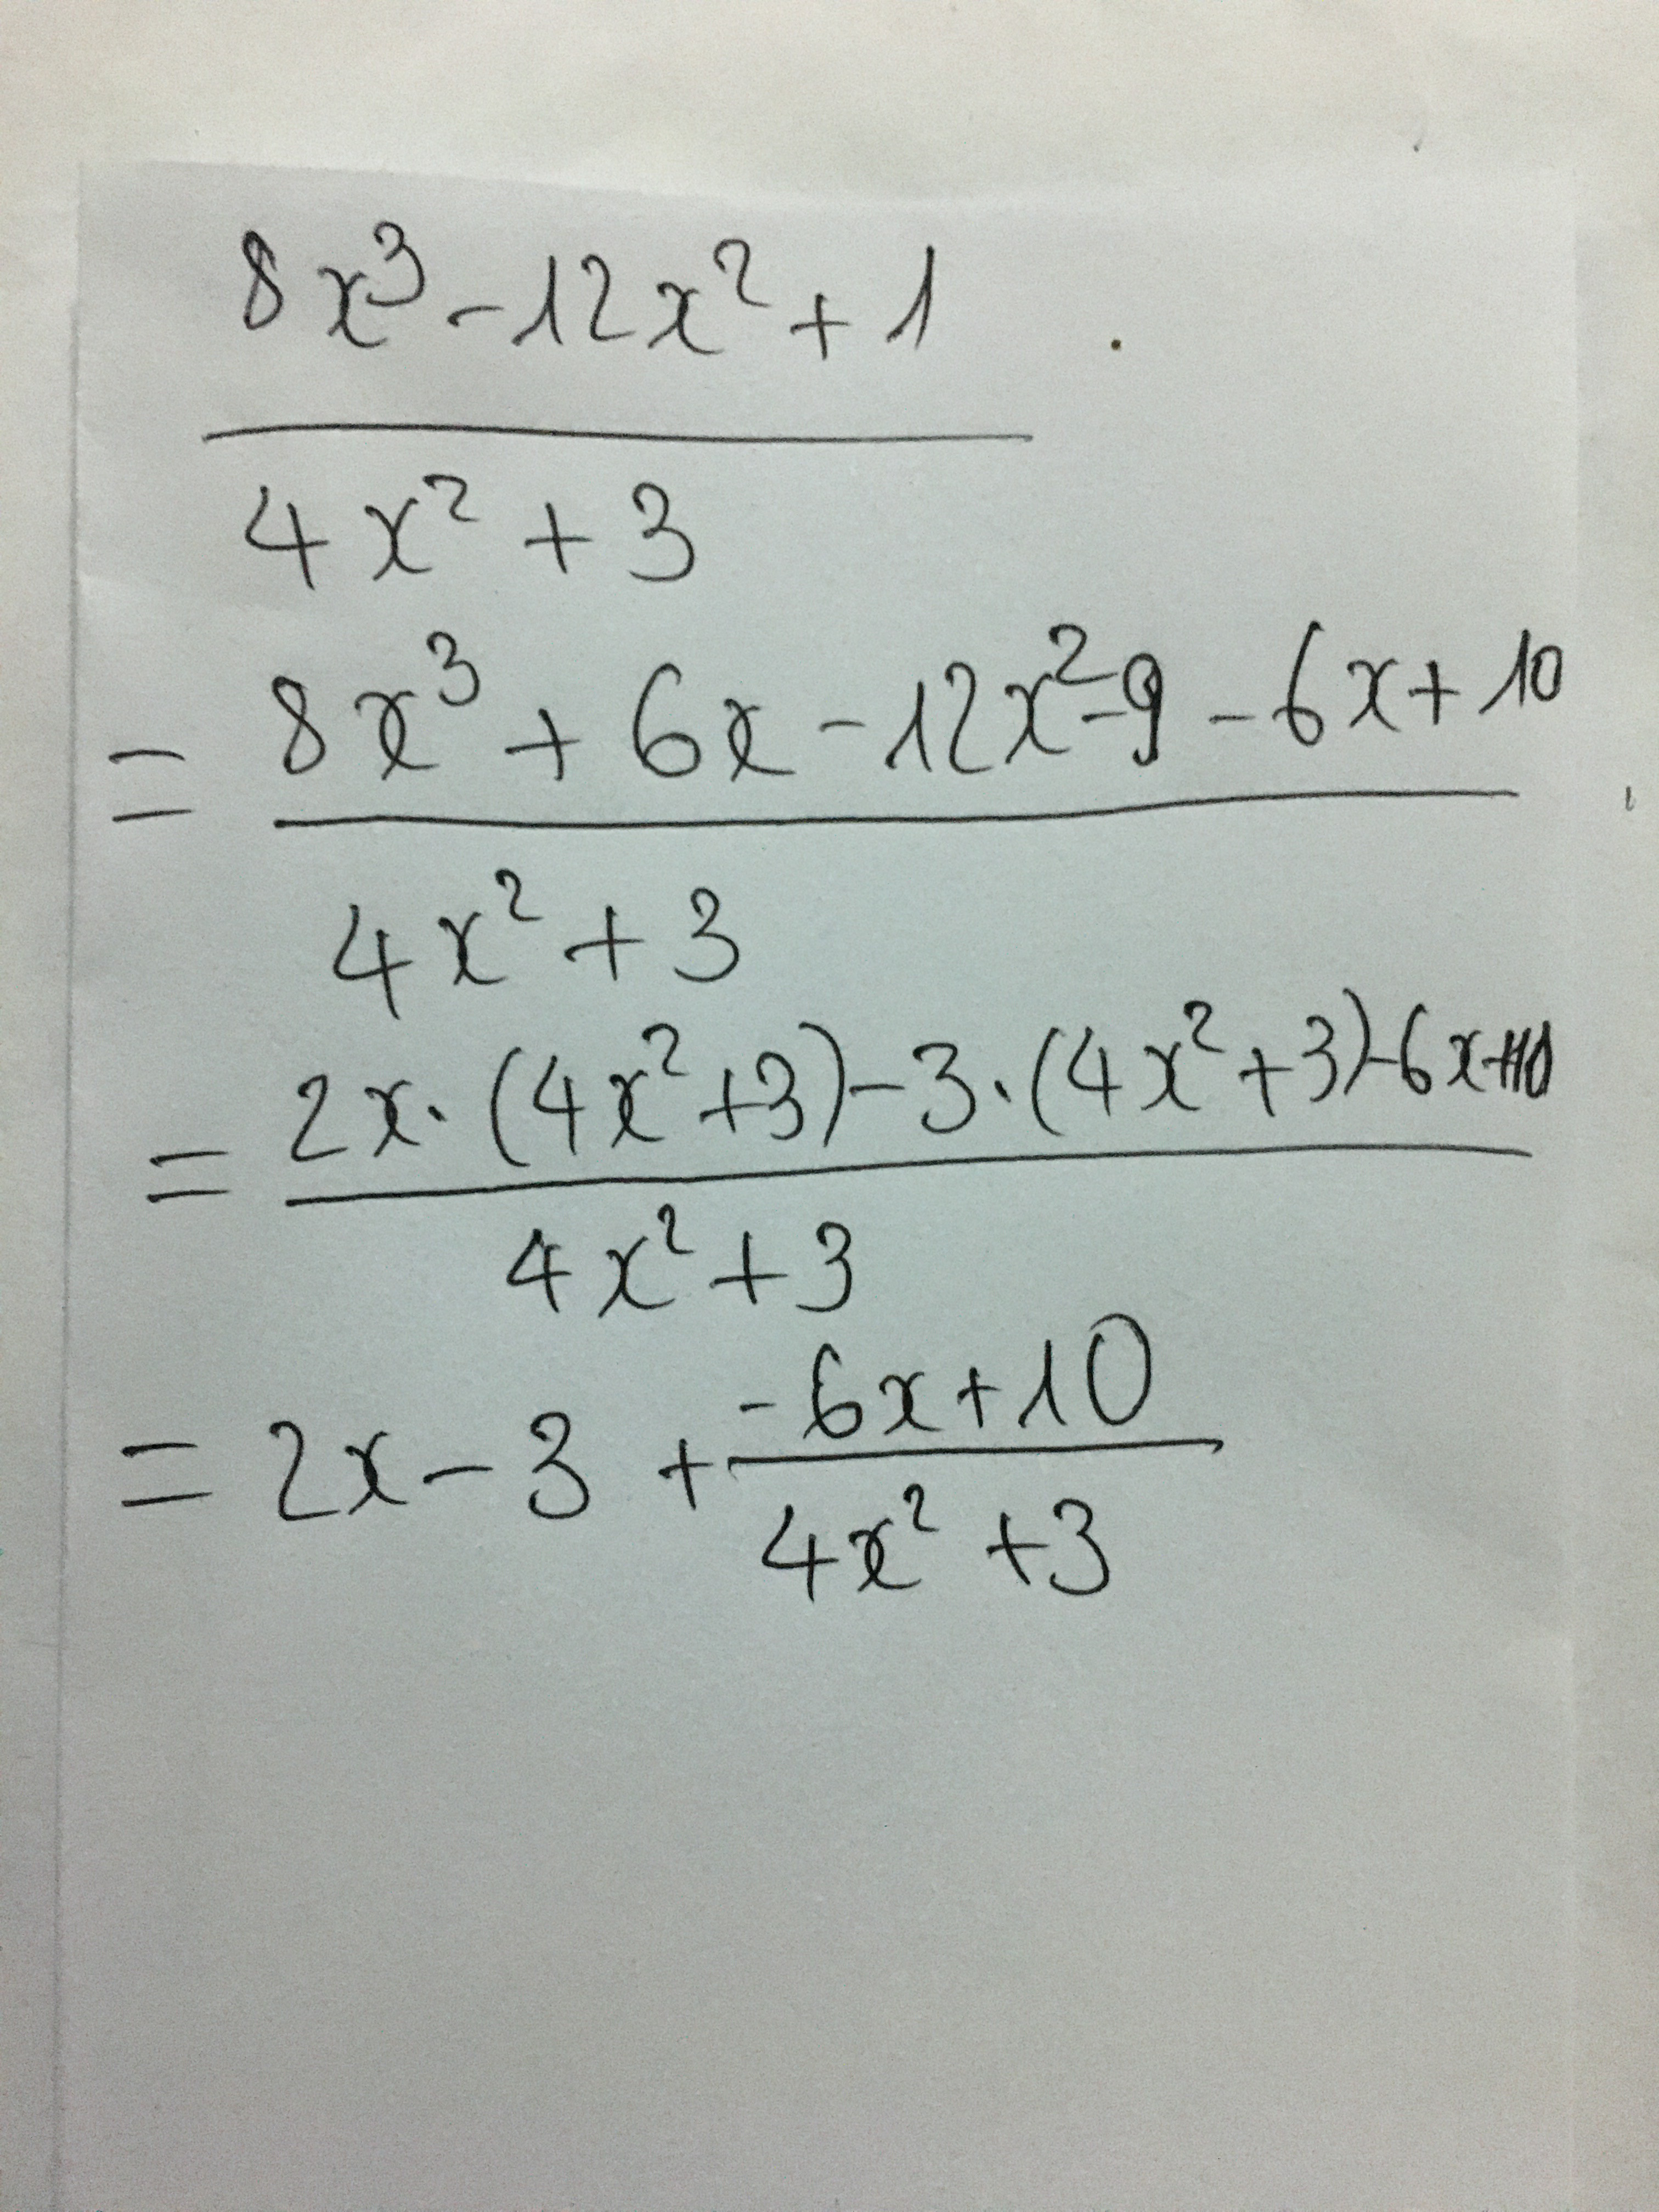 8x³ - 12x² + 1
4x² + 3
= 8x³ + 6x - 12x² - 9 - 6x + 10
4x² + 3
= 2x · (4x² + 3) - 3 · (4x² + 3) - 6x + 10
4x² + 3
= 2x - 3 + -6x + 10
4x² + 3